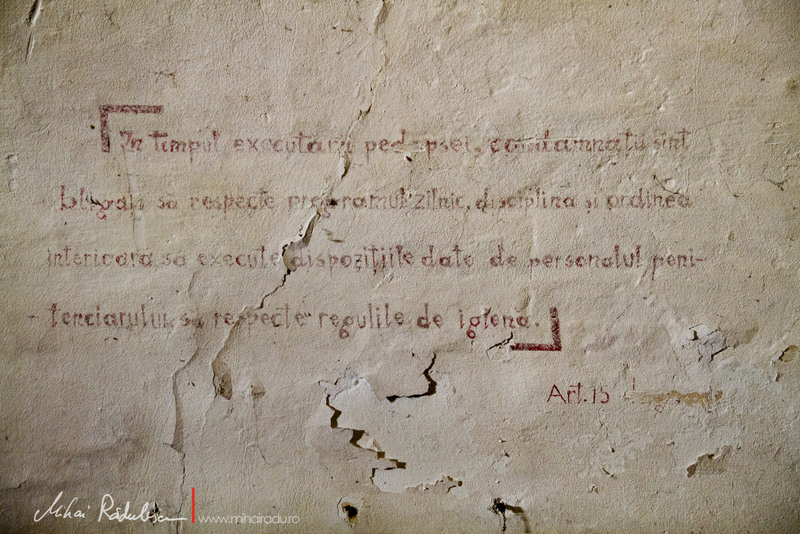 În timpul executării pedepsei, condamnații sînt
obligați să respecte programul zilnic, disciplina și ordinea
interioară, să execute dispozițiile date de personalul peni-
-tenciarului, să respecte regulile de igienă.
Art. 15
Mihai Rădulescu
www.mihairadu.ro